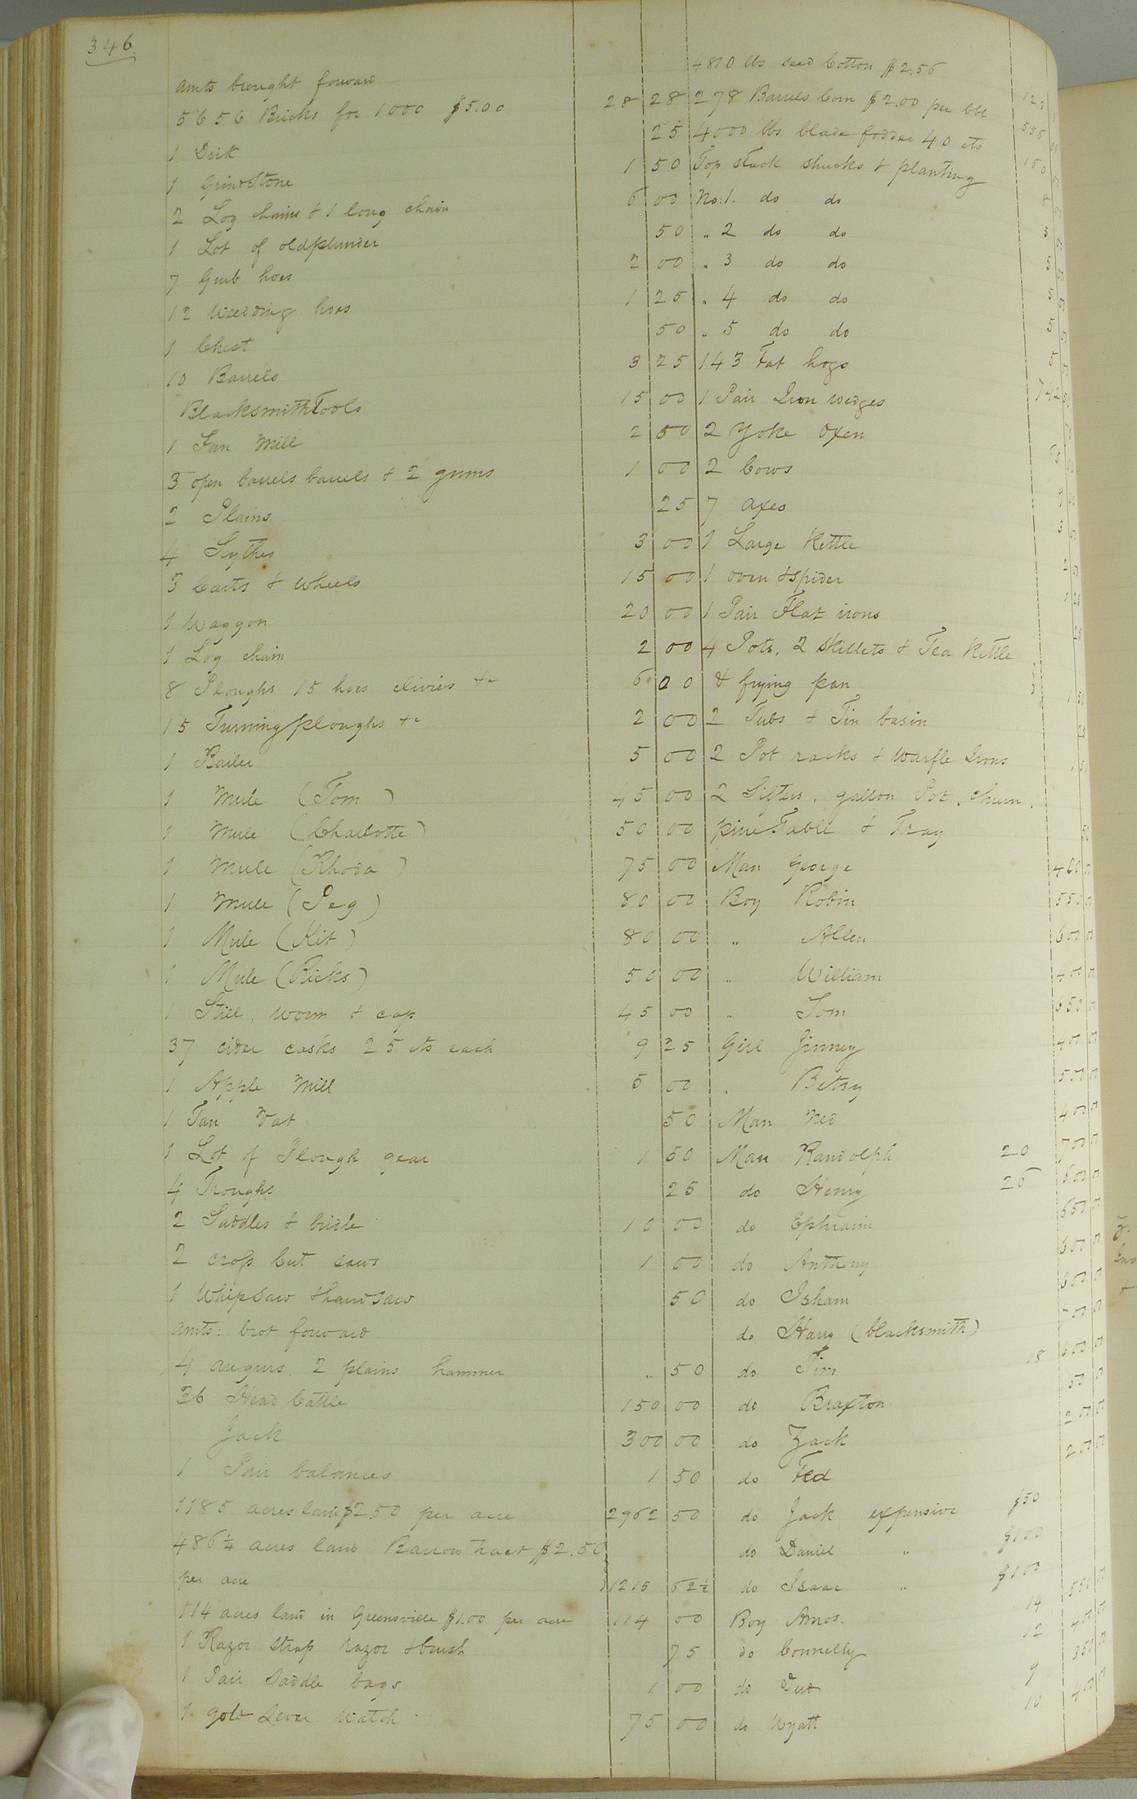 346
amts brought forward
5656 Bricks for 1000 $5.00 28 28
1 Desk 25
1 Grindstone 1 50
2 Log chains & 1 long chain 6 00
1 Lot of old plunder 50
7 Grub hoes 2 00
12 Weeding hoes 1 25
1 Chest 50
10 Barrels 3 25
Blacksmith Tools 15 00
1 Fan Mill 2 50
3 open barrels barrels & 2 gums 1 00
2 Plains 25
4 Scythes 3 00
3 Carts & Wheels 15 00
1 Waggon 20 00
1 Log chain 2 00
8 Ploughs 15 hoes clivies &c 6 00
15 Turning ploughs &c 2 00
1 Boiler 5 00
1 Mule (Tom) 45 00
1 Mule (Charlotte) 50 00
1 Mule (Rhoda) 75 00
1 Mule (Peg) 80 00
1 Mule (Kit) 80 00
1 Mule (Ricks) 50 00
1 Still, worm & cap 45 00
37 cider casks 25 cts each 9 25
1 Apple Mill 5 00
1 Tan Vat 50
1 Lot of Plough gear 1 50
4 Troughs 25
2 Saddles & bridle 10 00
2 cross Cut saws 1 00
1 Whipsaw & handsaw 50
amts: brot forward
4 augurs 2 plains hammer " 50
36 Head Cattle 150 00
Jack 300 00
1 Pair balances 1 50
1185 acres land $2.50 per acre 2962 50
486¼ acres land Barrow tract $2.50
per acre 1215 62½
114 acres land in Greensville $1.00 per acre 114 00
1 Razor strap razor & brush 75
1 Pair Saddle bags 1 00
1 gold Lever Watch 75 00
4810 lbs seed Cotton $2.56
278 Barrels Corn $2.00 per bbl
4000 lbs blade fodder 40 cts
Top stack shucks & planting
No: 1. do do
" 2 do do
" 3 do do
" 4 do do
" 5 do do
143 Fat hogs
1 Pair Iron wedges
2 Yoke Oxen
2 Cows
7 axes
1 Large Kettle
1 oven & spider
1 Pair Flat irons
4 Pots, 2 Skillets & Tea Kettle
& frying pan
2 Tubs & Tin basin
2 Pot racks & Warfle Irons
2 Sifters, gallon Pot, churn,
pine Table & Tray
Man George 400 00
Boy Robin 550 00
" Allen 600 00
" William
" Tom
Girl Jinney 400 00
" Betsy 500 00
Man Ned 400 00
Man Randolph 20 700 00
do Henry
do Ephraim
do Anthony 600 00
do Isham
do Harry (blacksmith)
do Jim
do Braxton
do Zack 200 00
do Ted 200 00
do Jack expensive $50
do Daniel " $100
do Isaac " $100
Boy Amos. 14
do Connelly 12
do 9
do Wyatt 10